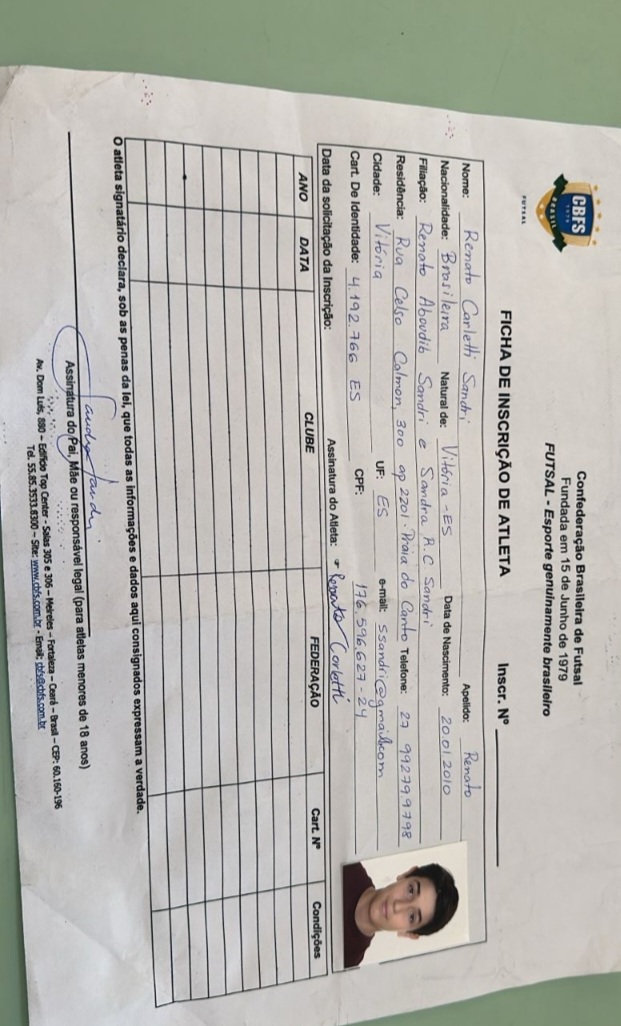 CBFS
1979
BRASIL
FUTSAL
Confederação Brasileira de Futsal
Fundada em 15 de Junho de 1979
FUTSAL - Esporte genuinamente brasileiro
FICHA DE INSCRIÇÃO DE ATLETA Inscr. Nº
Nome: Renato Carletti Sandri Apelido: Renato
Nacionalidade: Brasileira Natural de: Vitória - ES Data de Nascimento: 20.01.2010
Filiação: Renato Aboudib Sandri e Sandra R. C Sandri
Residência: Rua Celso Calmon, 300 ap 2201. Praia do Canto Telefone: 27 992799798
Cidade: Vitória UF: ES e-mail: ssandric@gmail.com
Cart. De Identidade: 4.192.766 ES CPF: 176.596.627-24
Data da solicitação da Inscrição: Assinatura do Atleta: Renato Carletti
ANO DATA CLUBE FEDERAÇÃO Cart. Nº Condições
O atleta signatário declara, sob as penas da lei, que todas as informações e dados aqui consignados expressam a verdade.
Assinatura do Pai, Mãe ou responsável legal (para atletas menores de 18 anos)
Av. Dom Luís, 880 – Edifício Top Center - Salas 305 e 306 – Meireles – Fortaleza – Ceará – Brasil – CEP: 60.160-196
Tel. 55.85.3533.8300 – Site: www.cbfs.com.br - Email: cbfs@cbfs.com.br